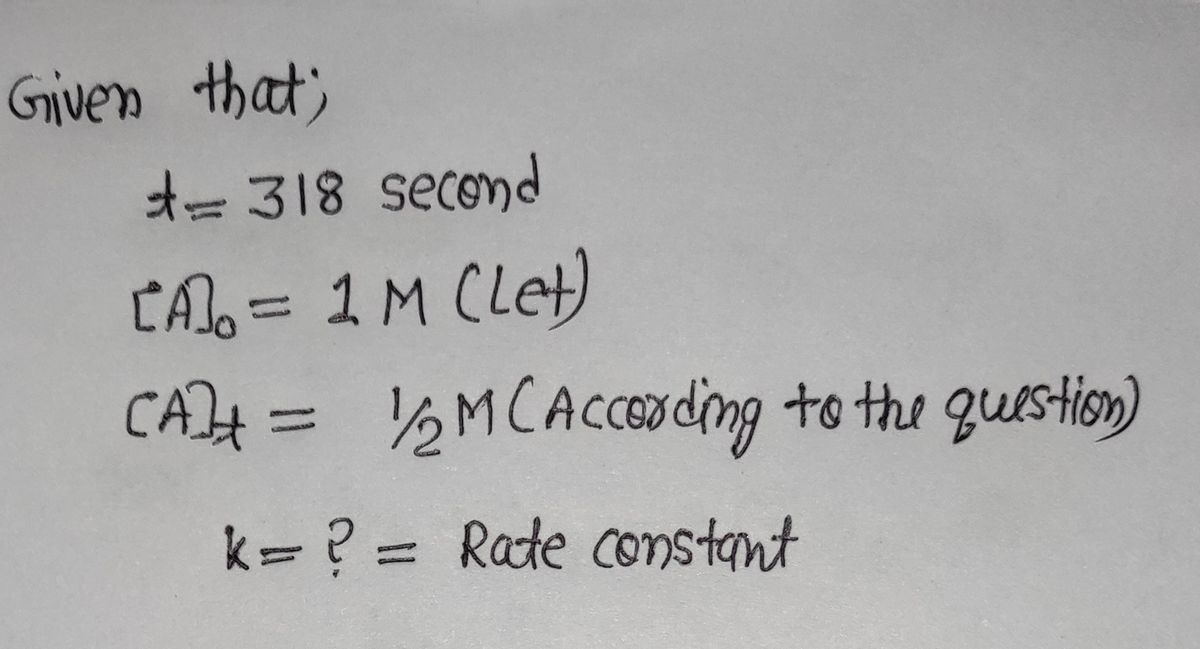 Given that;
t = 318 second
[A]₀ = 1 M (Let)
[A]t = 1/2 M (According to the question)
k = ? = Rate constant